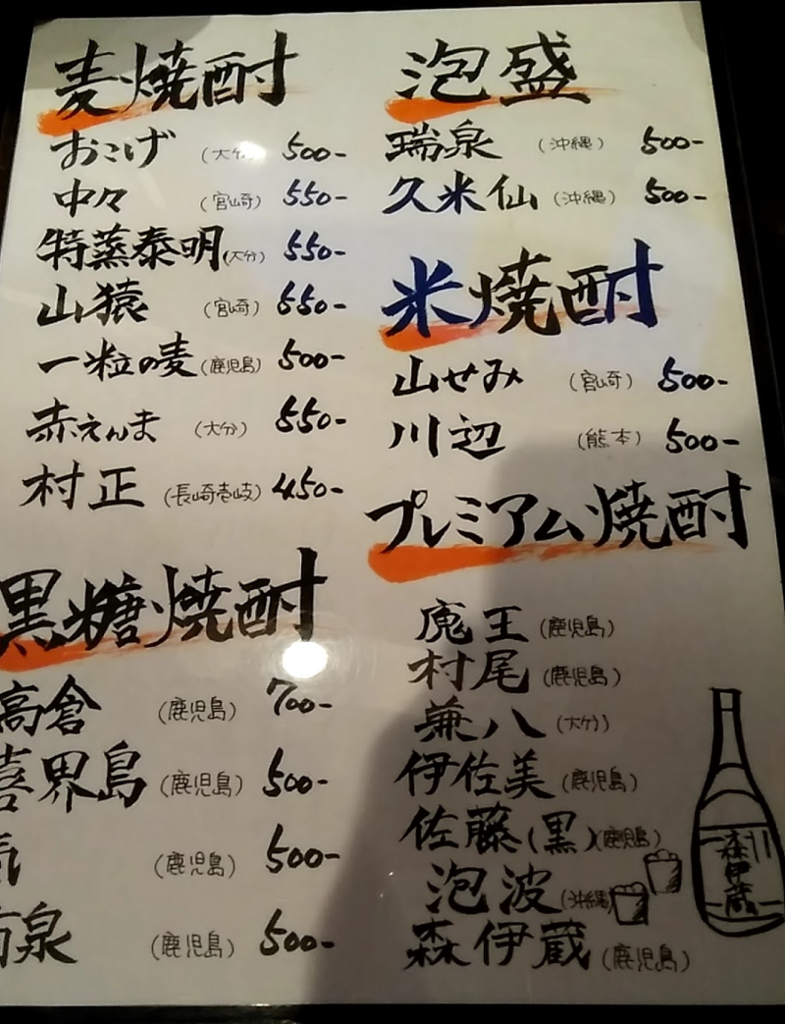 麦焼酎
おこげ (大分) 500-
中々 (宮崎) 550-
特蒸泰明 (大分) 550-
山猿 (宮崎) 550-
一粒の麦 (鹿児島) 500-
赤えんま (大分) 550-
村正 (長崎壱岐) 450-
黒糖焼酎
高倉 (鹿児島) 700-
喜界島 (鹿児島) 500-
(鹿児島) 500-
泉 (鹿児島) 500-
泡盛
瑞泉 (沖縄) 500-
久米仙 (沖縄) 500-
米焼酎
山せみ (宮崎) 500-
川辺 (熊本) 500-
プレミアム焼酎
魔王 (鹿児島)
村尾 (鹿児島)
兼八 (大分)
伊佐美 (鹿児島)
佐藤(黒) (鹿児島)
泡波 (沖縄)
森伊蔵 (鹿児島)
森伊蔵